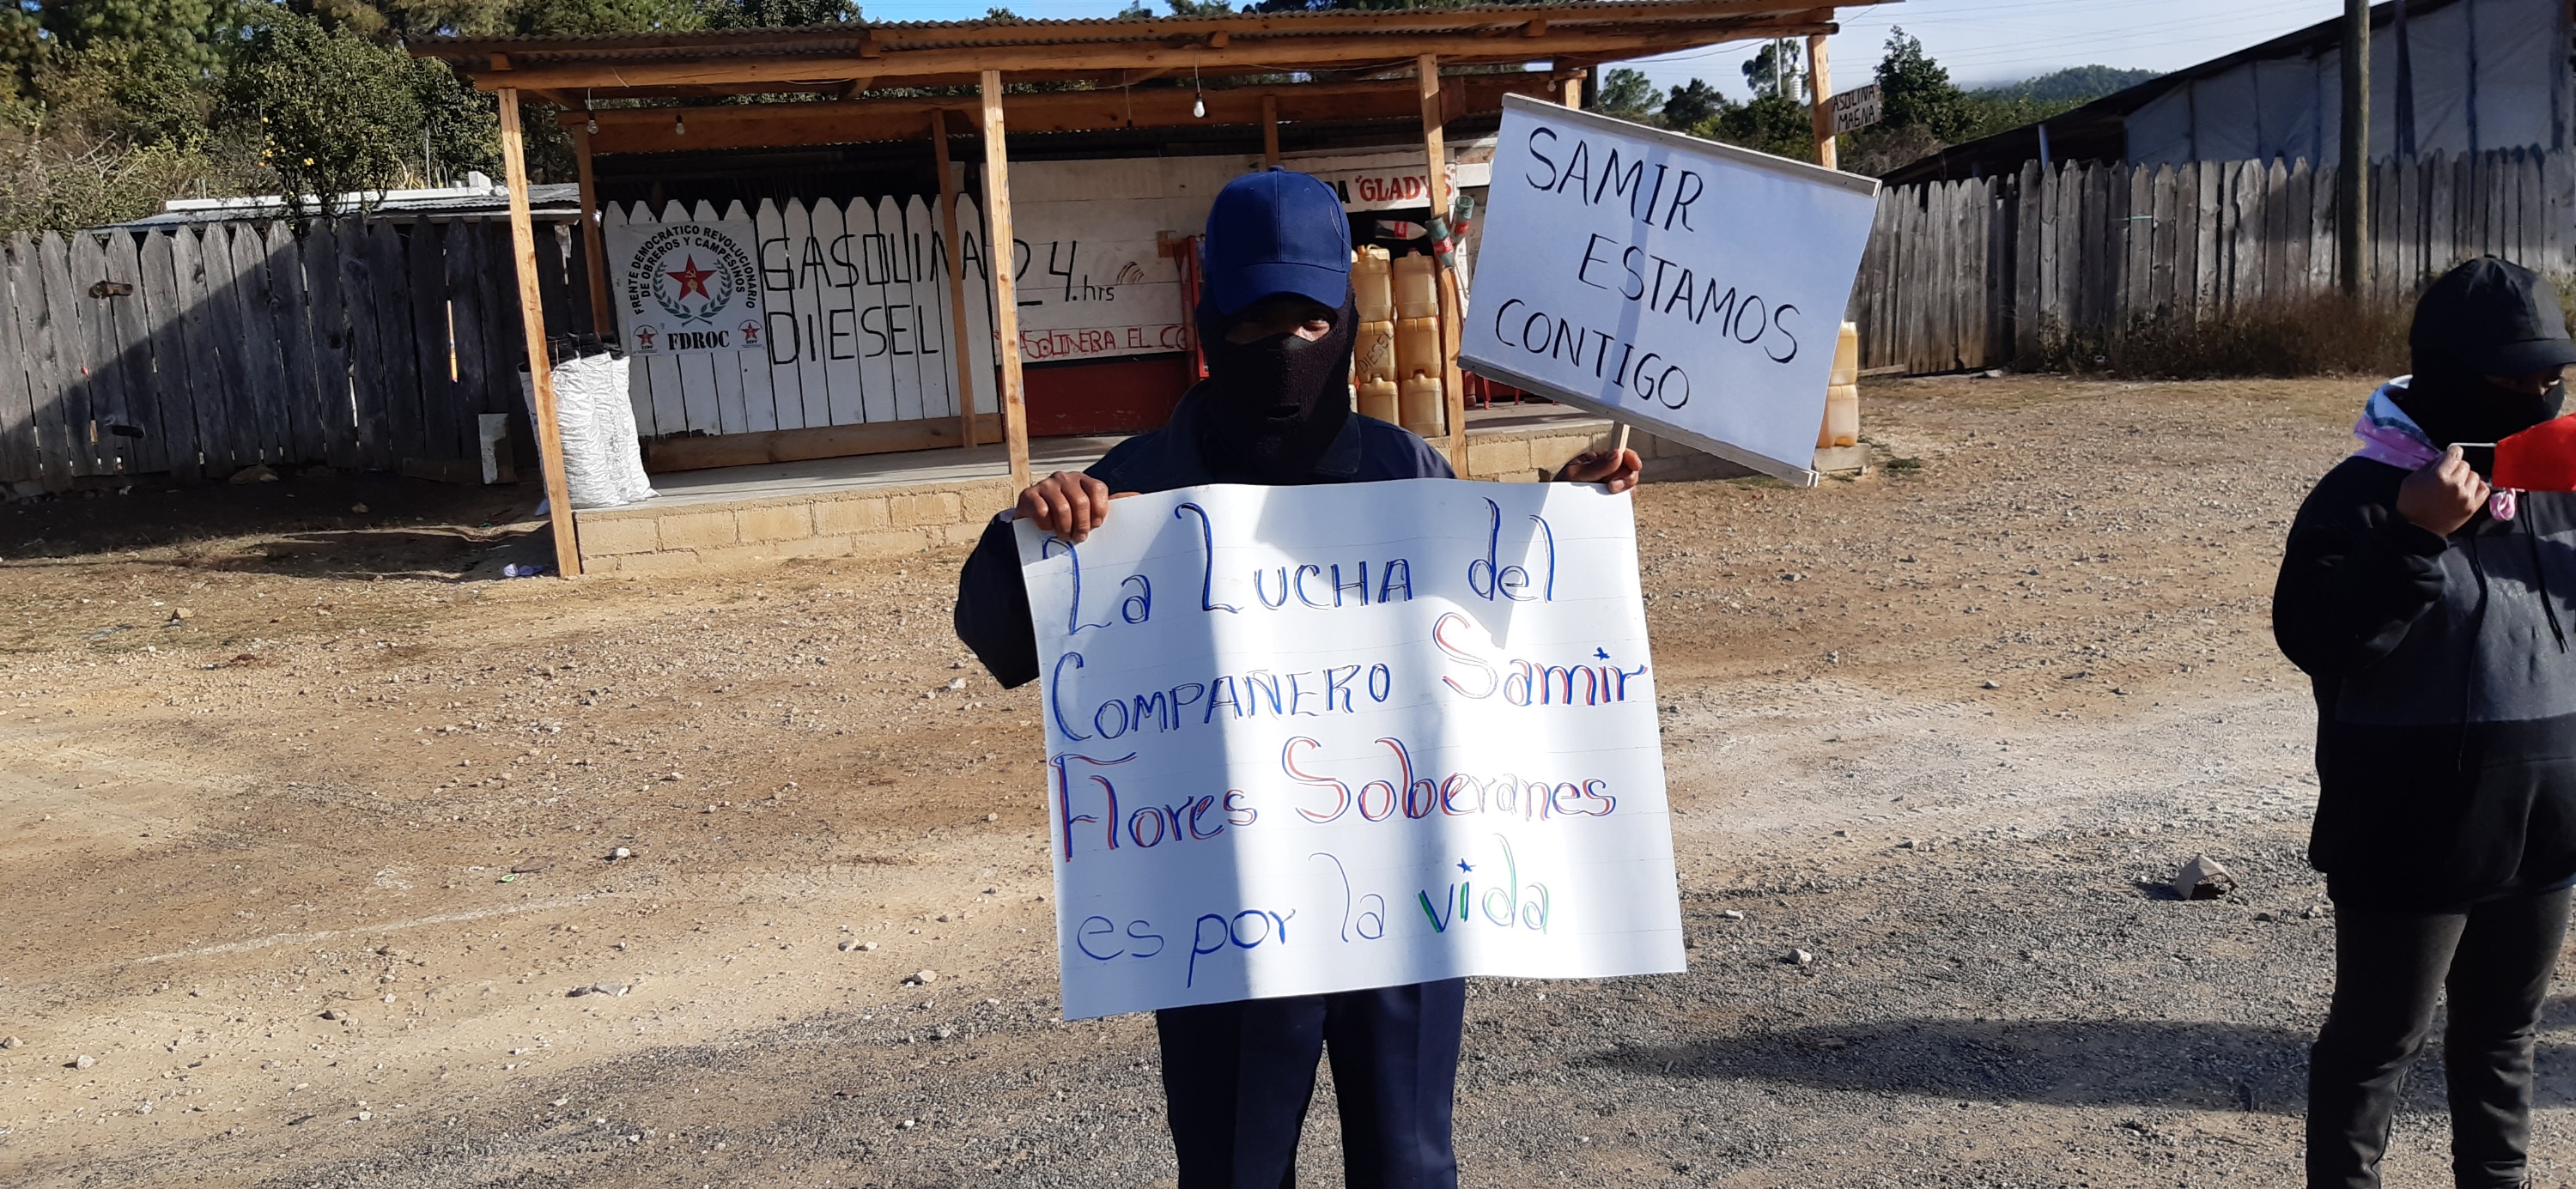 FRENTE DEMOCRÁTICO REVOLUCIONARIO
DE OBREROS Y CAMPESINOS
FDROC
GASOLINA
DIESEL
24.hrs
"GLADYS"
DIESEL
MAGNA
SAMIR
ESTAMOS
CONTIGO
La LUCHA del
COMPAÑERO Samir
Flores Soberanes
es por la vida